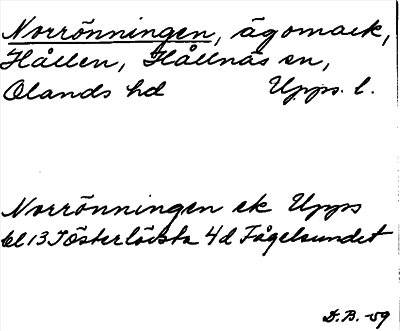 Norrönningen, ägomark,
Hållen, Hållnäs sn,
Olands hd Upps. l.
Norrönningen ek Upps
bl 13 J Österlövsta 4d Fågelsundet
D.B. -59